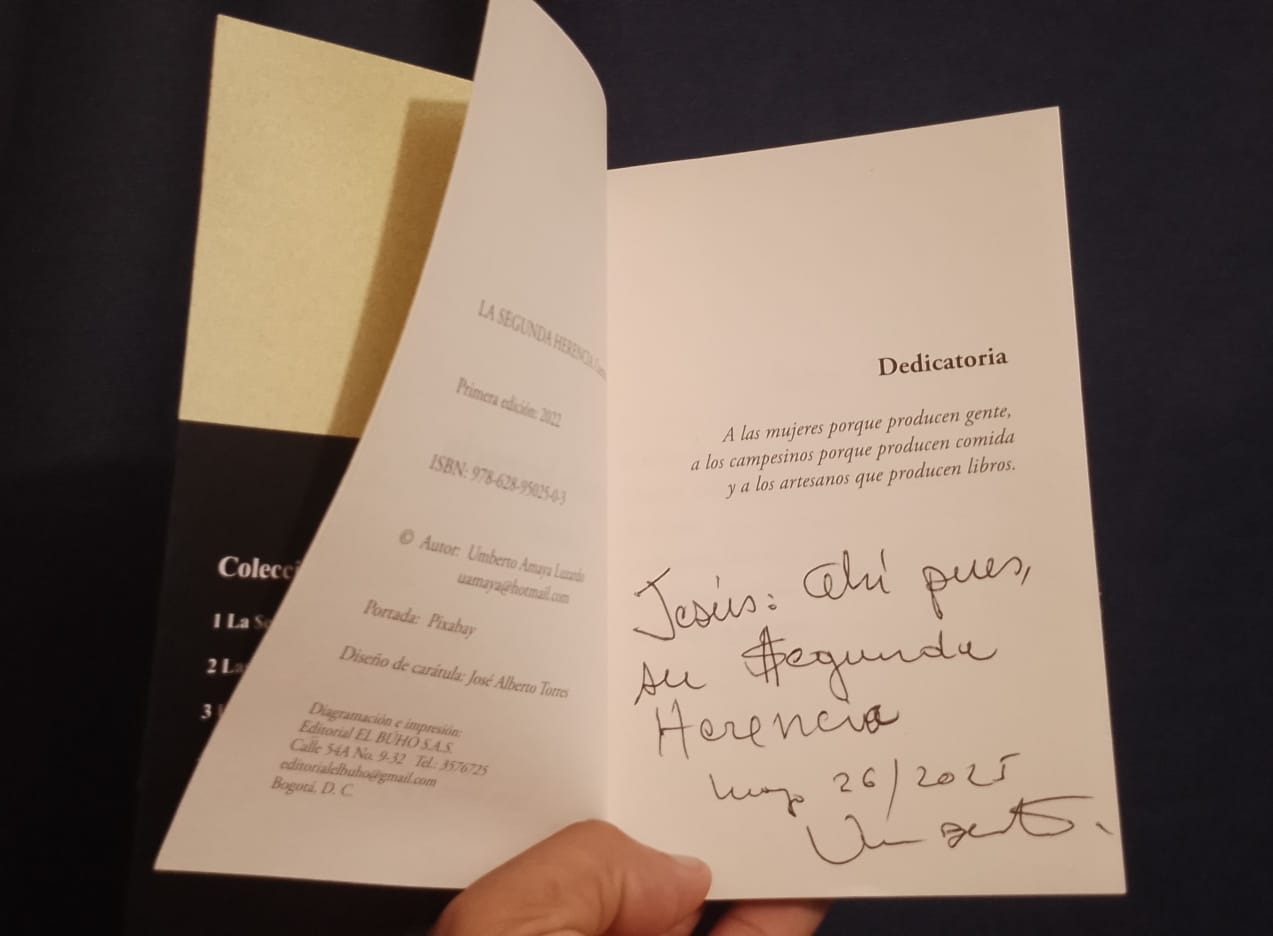 Colecci
1 La
2 La
3
LA SEGUNDA HERENCIA
Primera edición: 2022
ISBN: 978-628-95025-0-3
© Autor: Umberto Amaya Luzardo
uamaya@hotmail.com
Portada: Pixabay
Diseño de carátula: José Alberto Torres
Diagramación e impresión:
Editorial EL BÚHO S.A.S.
Calle 54A No. 9-32 Tel.: 3576725
editorialelbuho@gmail.com
Bogotá, D. C.
Dedicatoria
A las mujeres porque producen gente,
a los campesinos porque producen comida
y a los artesanos que producen libros.
Jesús: Ahí pues,
su Segunda
Herencia
26/2025
Umberto.